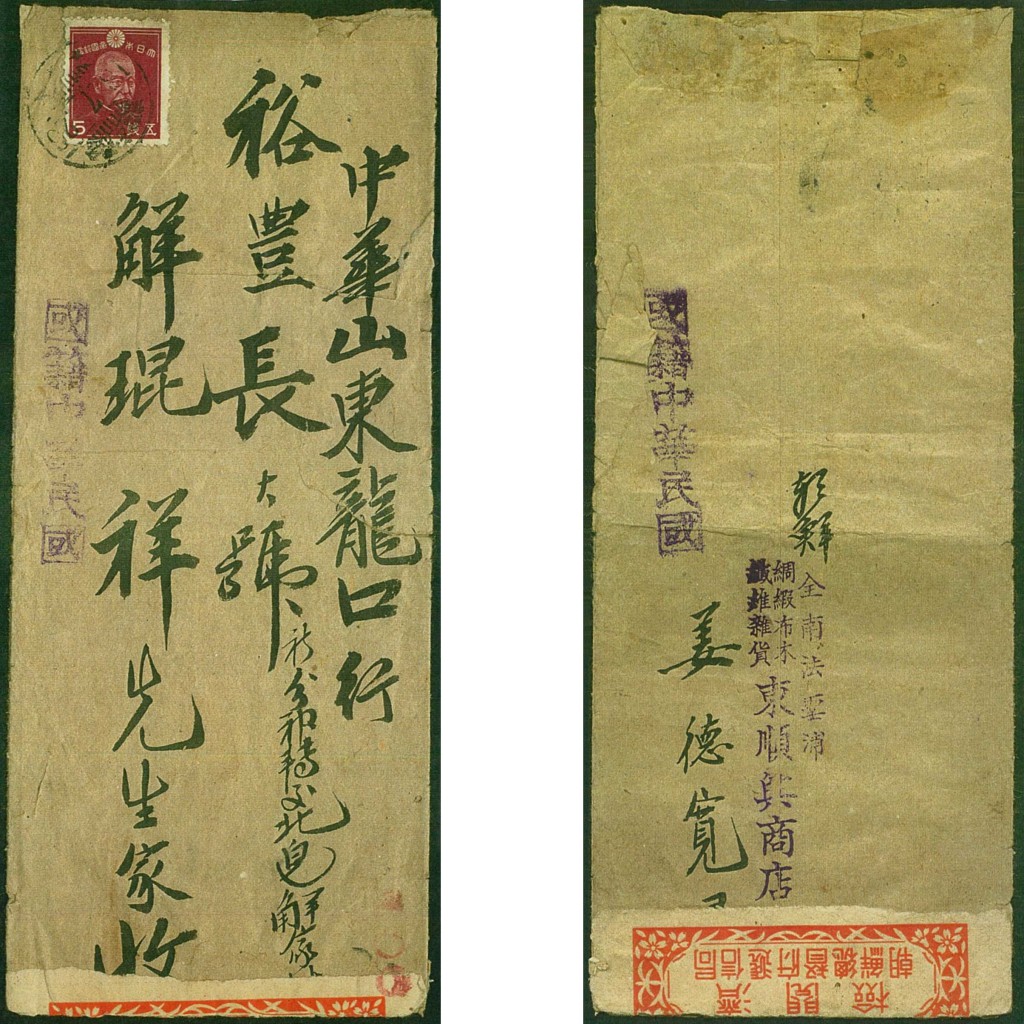 大日本帝國郵便
5 五銭
中華山東龍口行
裕豊長大號
祈分神轉交北皂解家
解琨祥先生家收
國籍中華民國
國籍中華民國
朝鮮
全南法聖浦
綢緞布木
雜貨
東順興商店
姜德寬
檢閱濟
朝鮮總督府遞信局